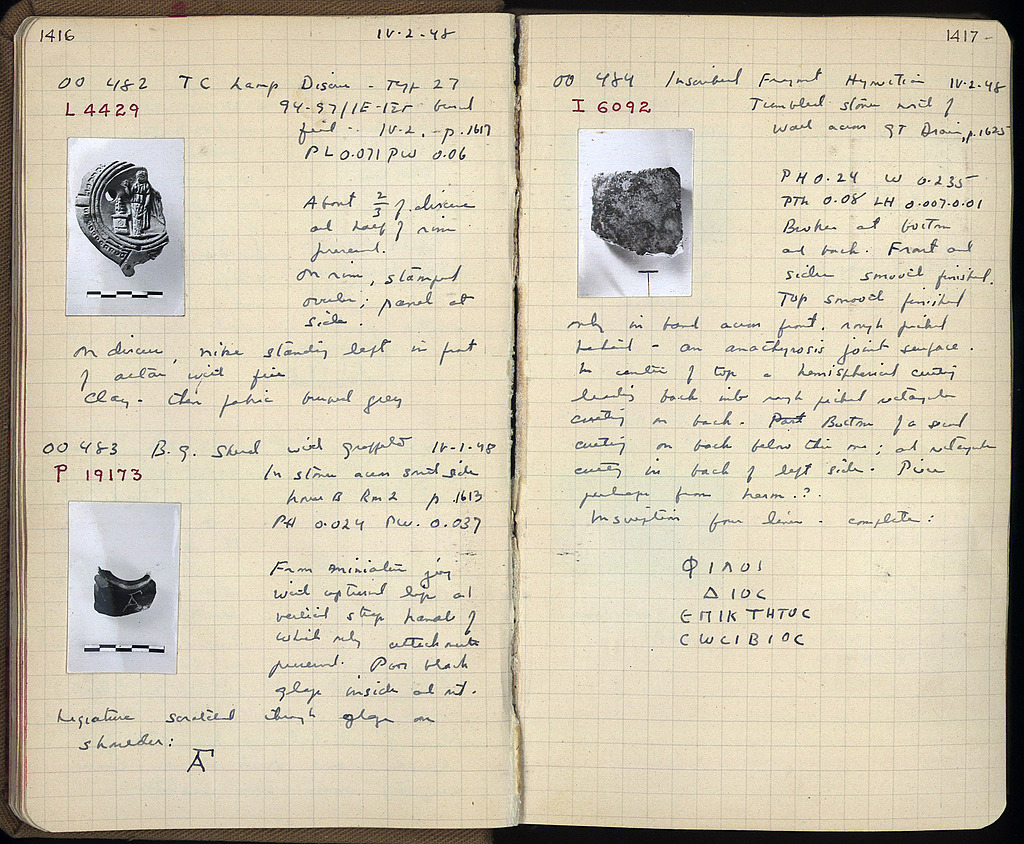 1416
IV-2-48
OO 482 TC Lamp Discus - Type 27
L 4429
94-97/ΙΕ-ΙΣΤ
IV-2, - p. 1617
PL 0.071 PW 0.06
About 2/3 of discus
and half of rim
present.
On rim, stamped
ovules; panel at
side.
On discus, Nike standing left in front
of altar with fire
Clay - thin fabric burned grey
OO 483 B.G. Sherd with graffito IV-1-48
P 19173
In stones across south side
House B Rm 2 p. 1613
PH 0.024 PW. 0.037
From miniature jug
with upturned lip and
vertical strap handle of
which only attachments
present. Poor black
glaze inside and out.
Ligature scratched through glaze on
shoulder:
1417
OO 484 Inscribed Fragment Hymettian IV-2-48
I 6092
Tumbled stones north of
wall across GT Drain, p. 1625
PH 0.24 W 0.235
PTh 0.08 LH 0.007-0.01
Broken at bottom
and back. Front and
sides smooth finished.
Top smooth finished
only in band across front, rough picked
behind - an anathyrosis joint surface.
In center of top a hemispherical cutting
leading back into rough picked rectangular
cutting on back. Part Bottom of a second
cutting on back below this one; and rectangular
cutting in back of left side. Piece
perhaps from herm.?
Inscription four lines - complete:
ΦΙΛΟΙ
ΔΙΟC
ΕΠΙΚΤΗΤΟC
CWCIBIOC